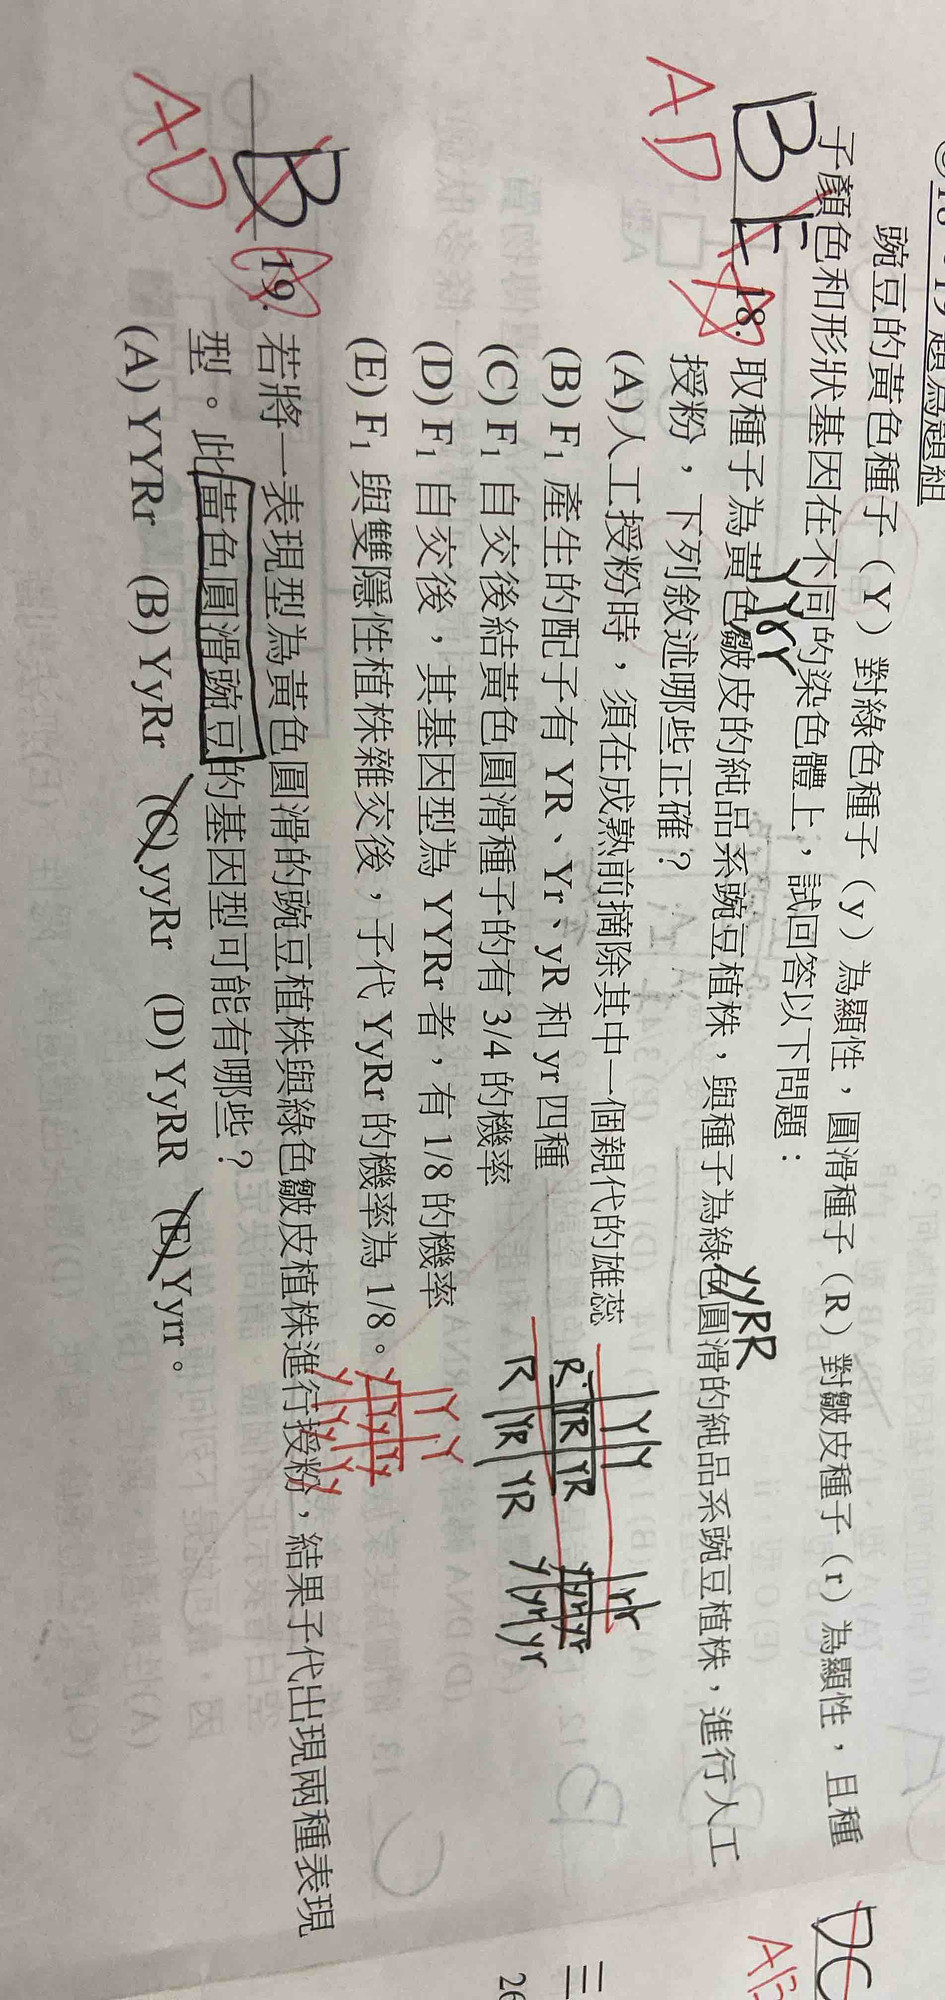 18、19題為題組
豌豆的黃色種子（Y）對綠色種子（y）為顯性，圓滑種子（R）對皺皮種子（r）為顯性，且種
子顏色和形狀基因在不同的染色體上，試回答以下問題：
BE 18. 取種子為黃色皺皮的純品系豌豆植株，與種子為綠色圓滑的純品系豌豆植株，進行人工
AD
YYrr
yyRR
授粉，下列敘述哪些正確？
(A)人工授粉時，須在成熟前摘除其中一個親代的雄蕊
(B) F₁ 產生的配子有 YR、Yr、yR 和 yr 四種
(C) F₁ 自交後結黃色圓滑種子的有 3/4 的機率
(D) F₁ 自交後，其基因型為 YYRr 者，有 1/8 的機率
(E) F₁ 與雙隱性植株雜交後，子代 YyRr 的機率為 1/8。
Y Y
R YR YR
R YR YR
r r
y yr yr
y yr yr
Y Y
y Yy Yy
y Yy Yy
B 19. 若將一表現型為黃色圓滑的豌豆植株與綠色皺皮植株進行授粉，結果子代出現兩種表現
AD
型。此黃色圓滑豌豆的基因型可能有哪些？
(A) YYRr (B) YyRr (C) yyRr (D) YyRR (E) Yyrr。
DC
AB
三
26